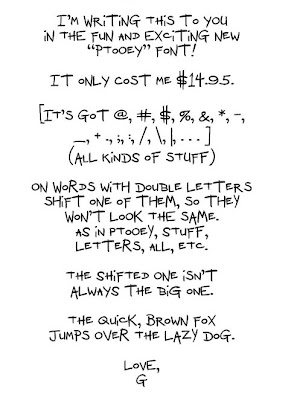 I'M WRITING THIS TO YOU
IN THE FUN AND EXCITING NEW
"PTOOEY" FONT!
IT ONLY COST ME $14.95.
[IT'S GOT @, #, $, %, &, *, -,
_, + ., ;, :, /, \, |, . . . ]
(ALL KINDS OF STUFF)
ON WORDS WITH DOUBLE LETTERS
SHIFT ONE OF THEM, SO THEY
WON'T LOOK THE SAME.
AS IN PTOOEY, STUFF,
LETTERS, ALL, ETC.
THE SHIFTED ONE ISN'T
ALWAYS THE BIG ONE.
THE QUICK, BROWN FOX
JUMPS OVER THE LAZY DOG.
LOVE,
G